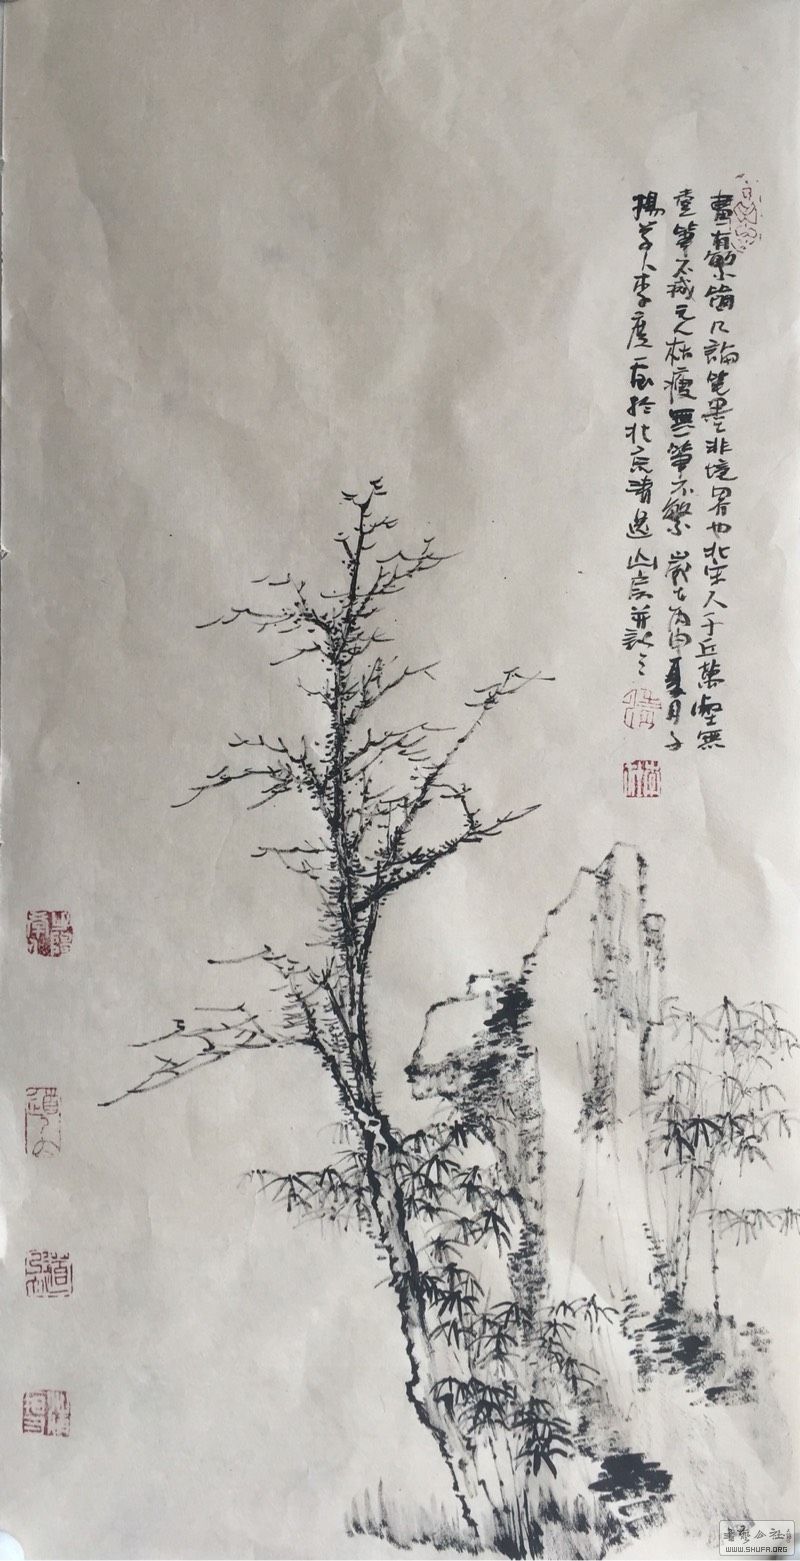 畫有繁簡乃論笔墨非境界也北宋人千丘萬壑無
壹筆不減元人枯瘦無一筆不繁 歲在丙申夏月子
揚草人李度画於北京清逸山房并記之
書藝公社
WWW.SHUFA.ORG